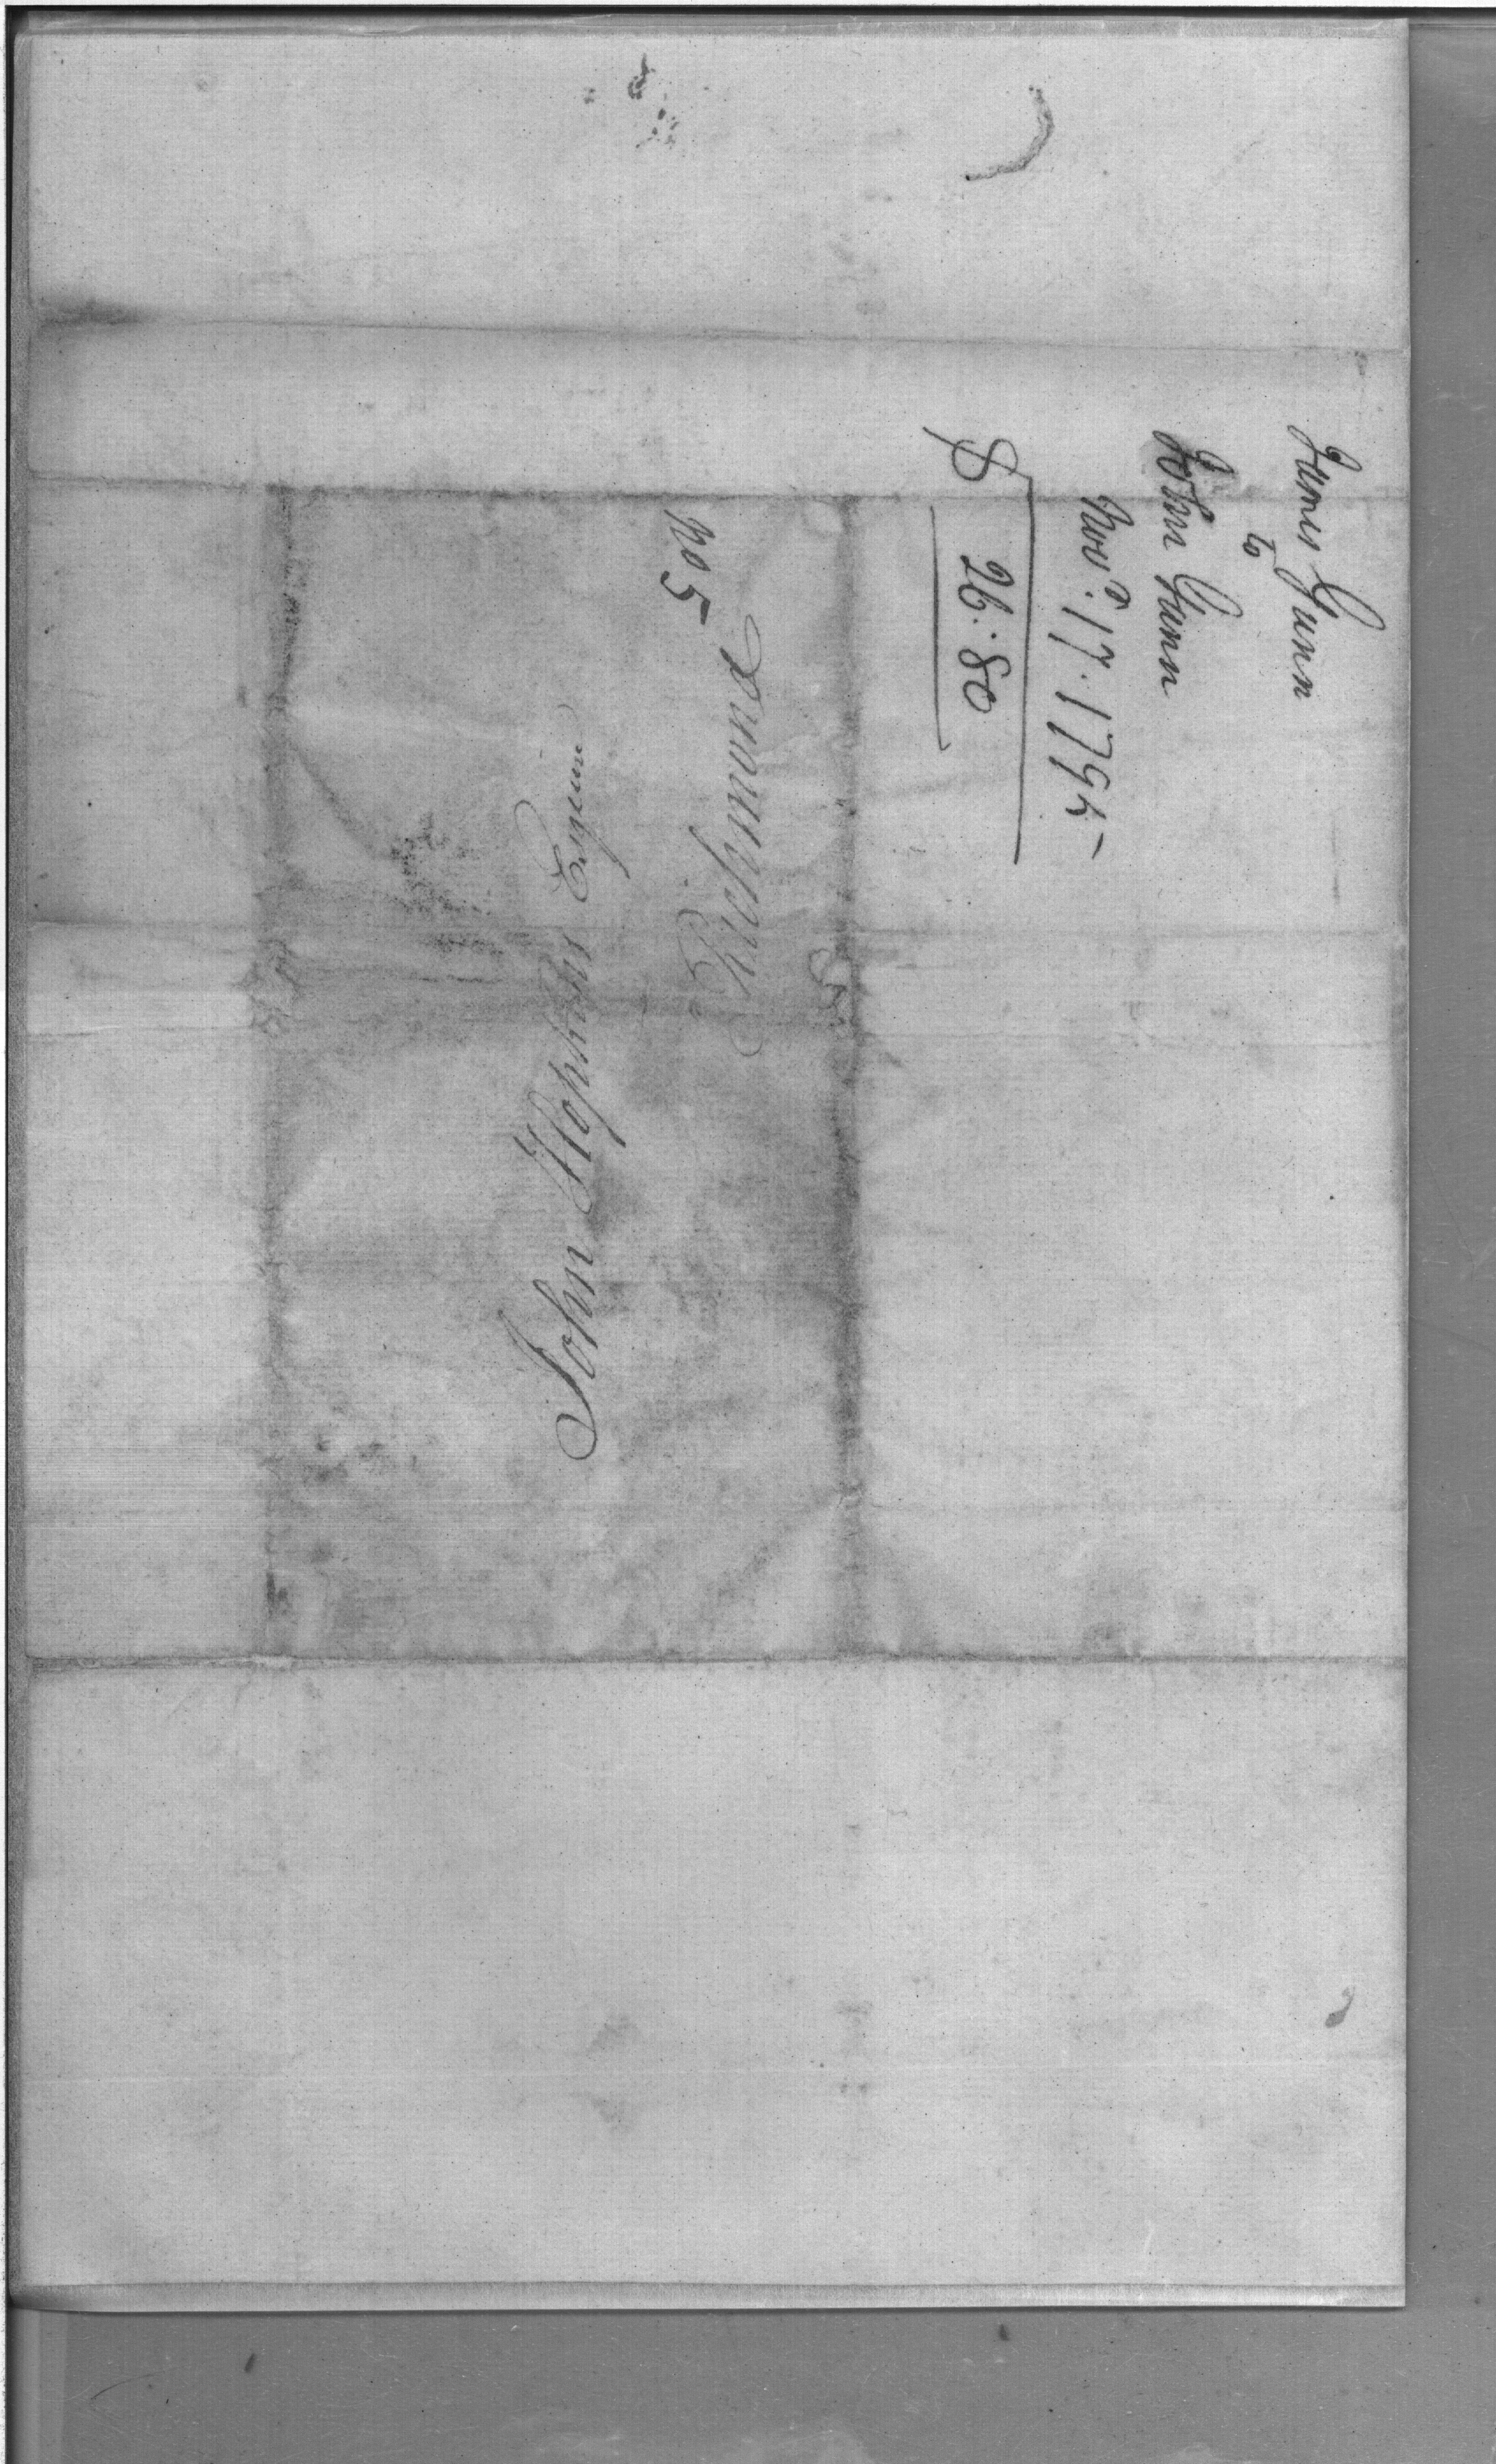 James Gunn
to
John Gunn
Novr. 17. 1795-
$ 26.80
No 5
John Hopkins Esquire
Richmond